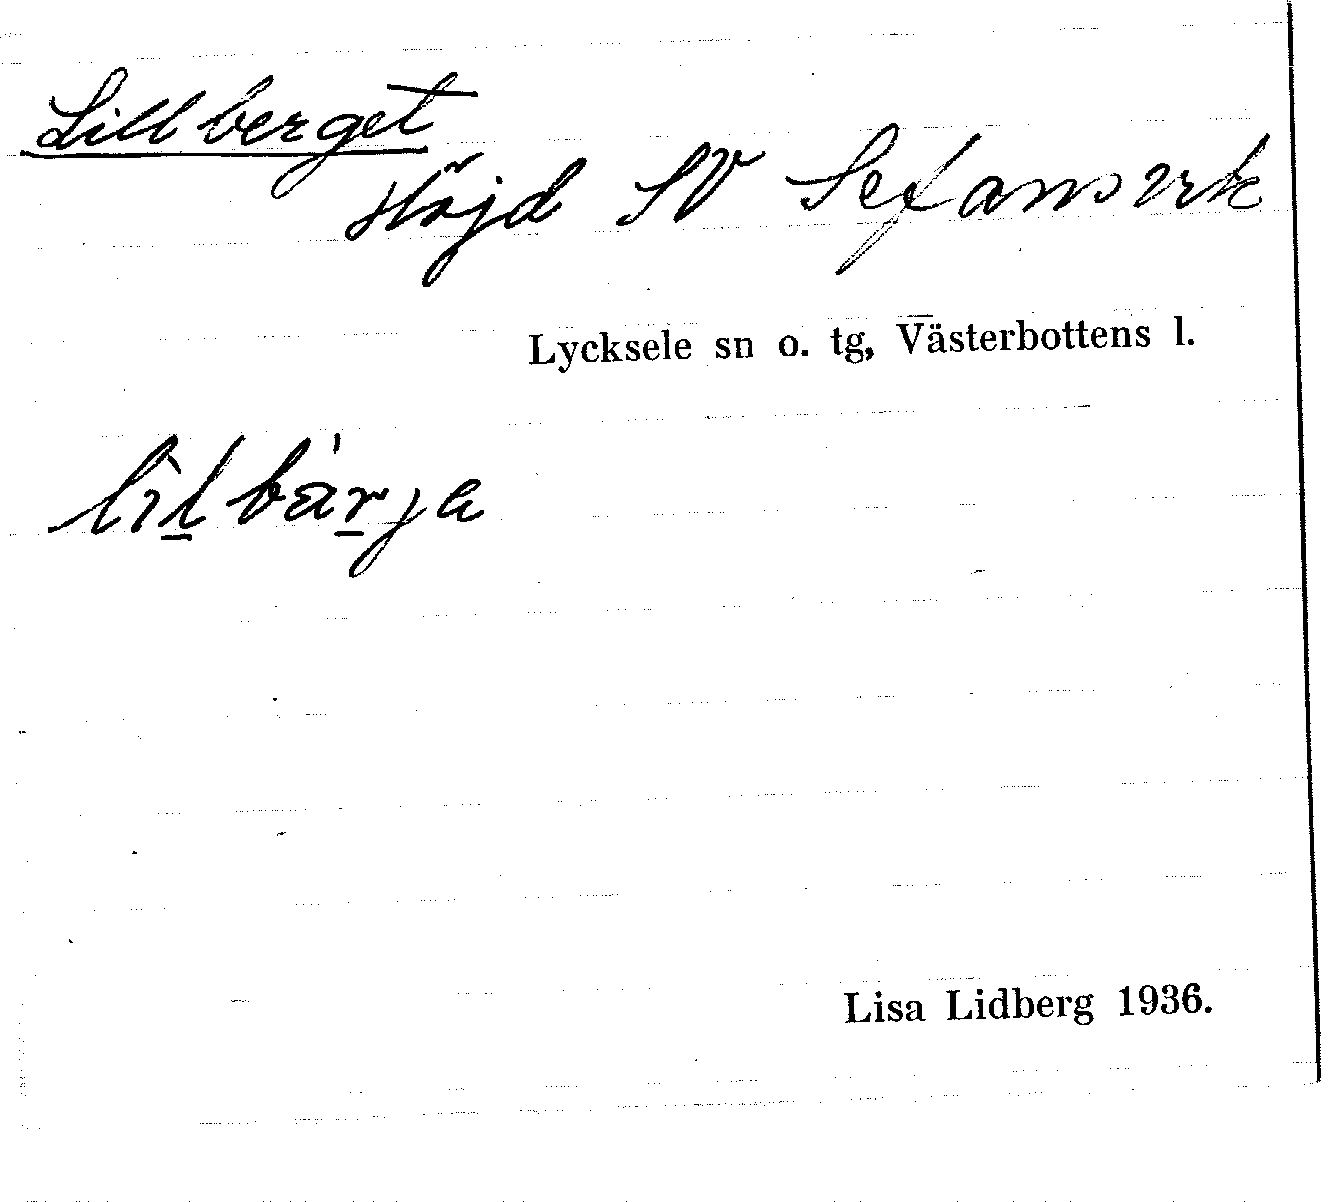 Lillberget
Höjd SV
Lycksele sn o. tg, Västerbottens l.
Lisa Lidberg 1936.